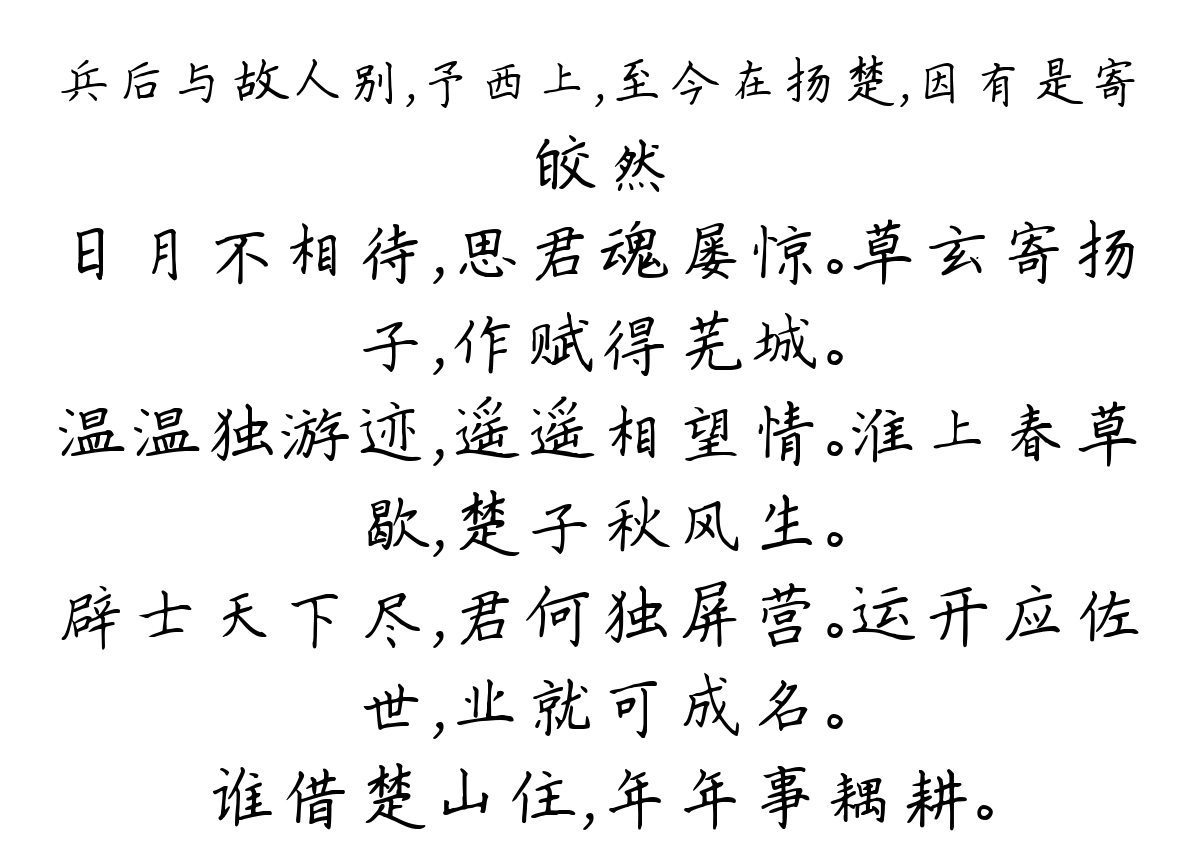 兵后与故人别,予西上,至今在扬楚,因有是寄
皎然
日月不相待,思君魂屡惊。草玄寄扬
子,作赋得芜城。
温温独游迹,遥遥相望情。淮上春草
歇,楚子秋风生。
辟士天下尽,君何独屏营。运开应佐
世,业就可成名。
谁借楚山住,年年事耦耕。